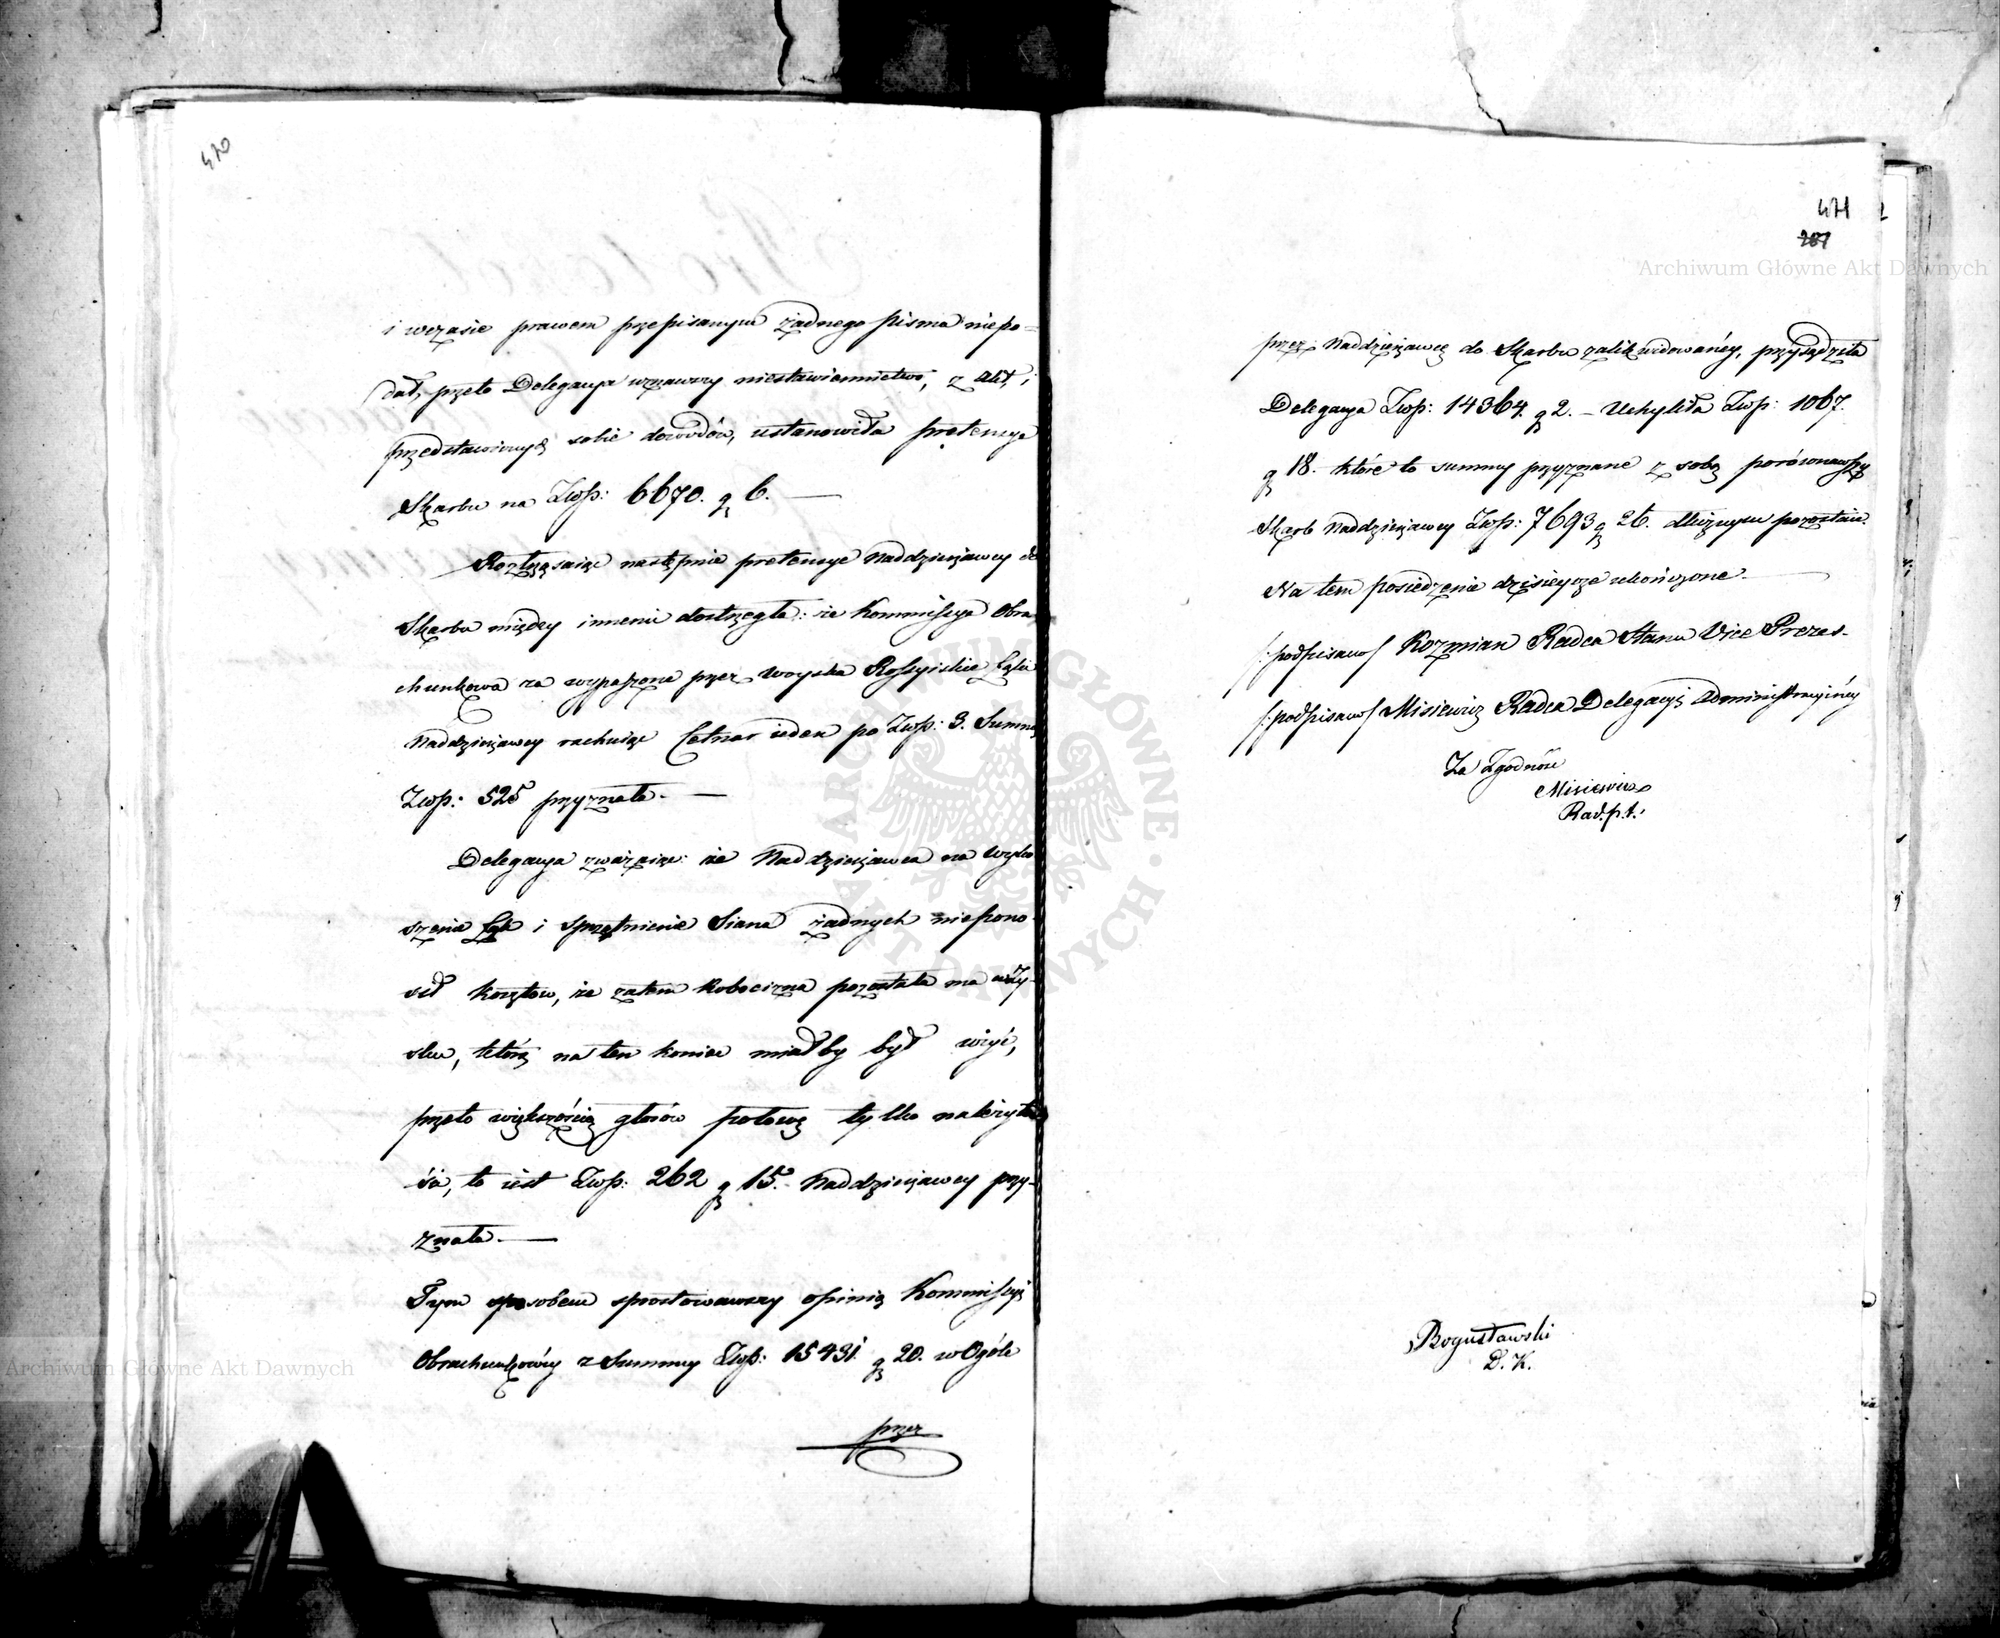 470
i wczasie prawem przepisanym żadnego pisma niepo=
dał, przeto Delegacya uznawszy niestawiennictwo, z Akt, i
przedstawionych sobie dowodów, ustanowiła pretensye
Skarbu na Zwp: 6670. g 6. —
Roztrząsaiąc następnie pretensye Naddzierżawcy do
Skarbu między innemi dostrzegła: że Kommissya Obra
chunkowa za wypaszone przez Woyska Rossyiskie Łąki
Naddzierżawcy rachuiąc Cetnar ieden po Zwp: 3. Summę
Zwp: 525 przyznała. —
Delegacya zważaiąc: że Naddzierżawca na wyko
szenie Łąk i sprzętnienie Siana żadnych niepono
sił kosztow, że zatem Robocizna pozostała na
sku, którą na ten koniec miałby był użyć,
przeto większością głosów połowę tylko należyto
ści, to iest Zwp: 262 g 15. Naddzierżawcy przy-
znała. —
Tym sposobem sprostowawszy opinią Kommissyi
Obrachunkowéy z Summy Zwp: 15431. g 20. w Ogóle
przez
471
207
przez Naddzierżawcę do Skarbu zalikwidowanéy, przysądziła
Delegacya Zwp: 14364. g 2. — Uchyliła Zwp: 1067.
g 18. które to summy przyznane z sobą porównawszy
Skarb Naddzierżawcy Zwp: 7693 g 26. dłużnym pozostaie.
Na tem posiedzenie dzisieysze ukończone. —
/:podpisano/ Kozmian Radca Stanu Vice Prezes.
/:podpisano/ Misiewicz Radca Delegacyi Administracyinéy
Za Zgodność
Misiewicz
Rad. p. t.
Bogusławski
D. K.
Archiwum Główne Akt Dawnych
Archiwum Główne Akt Dawnych
ARCHIWUM GŁÓWNE AKT DAWNYCH